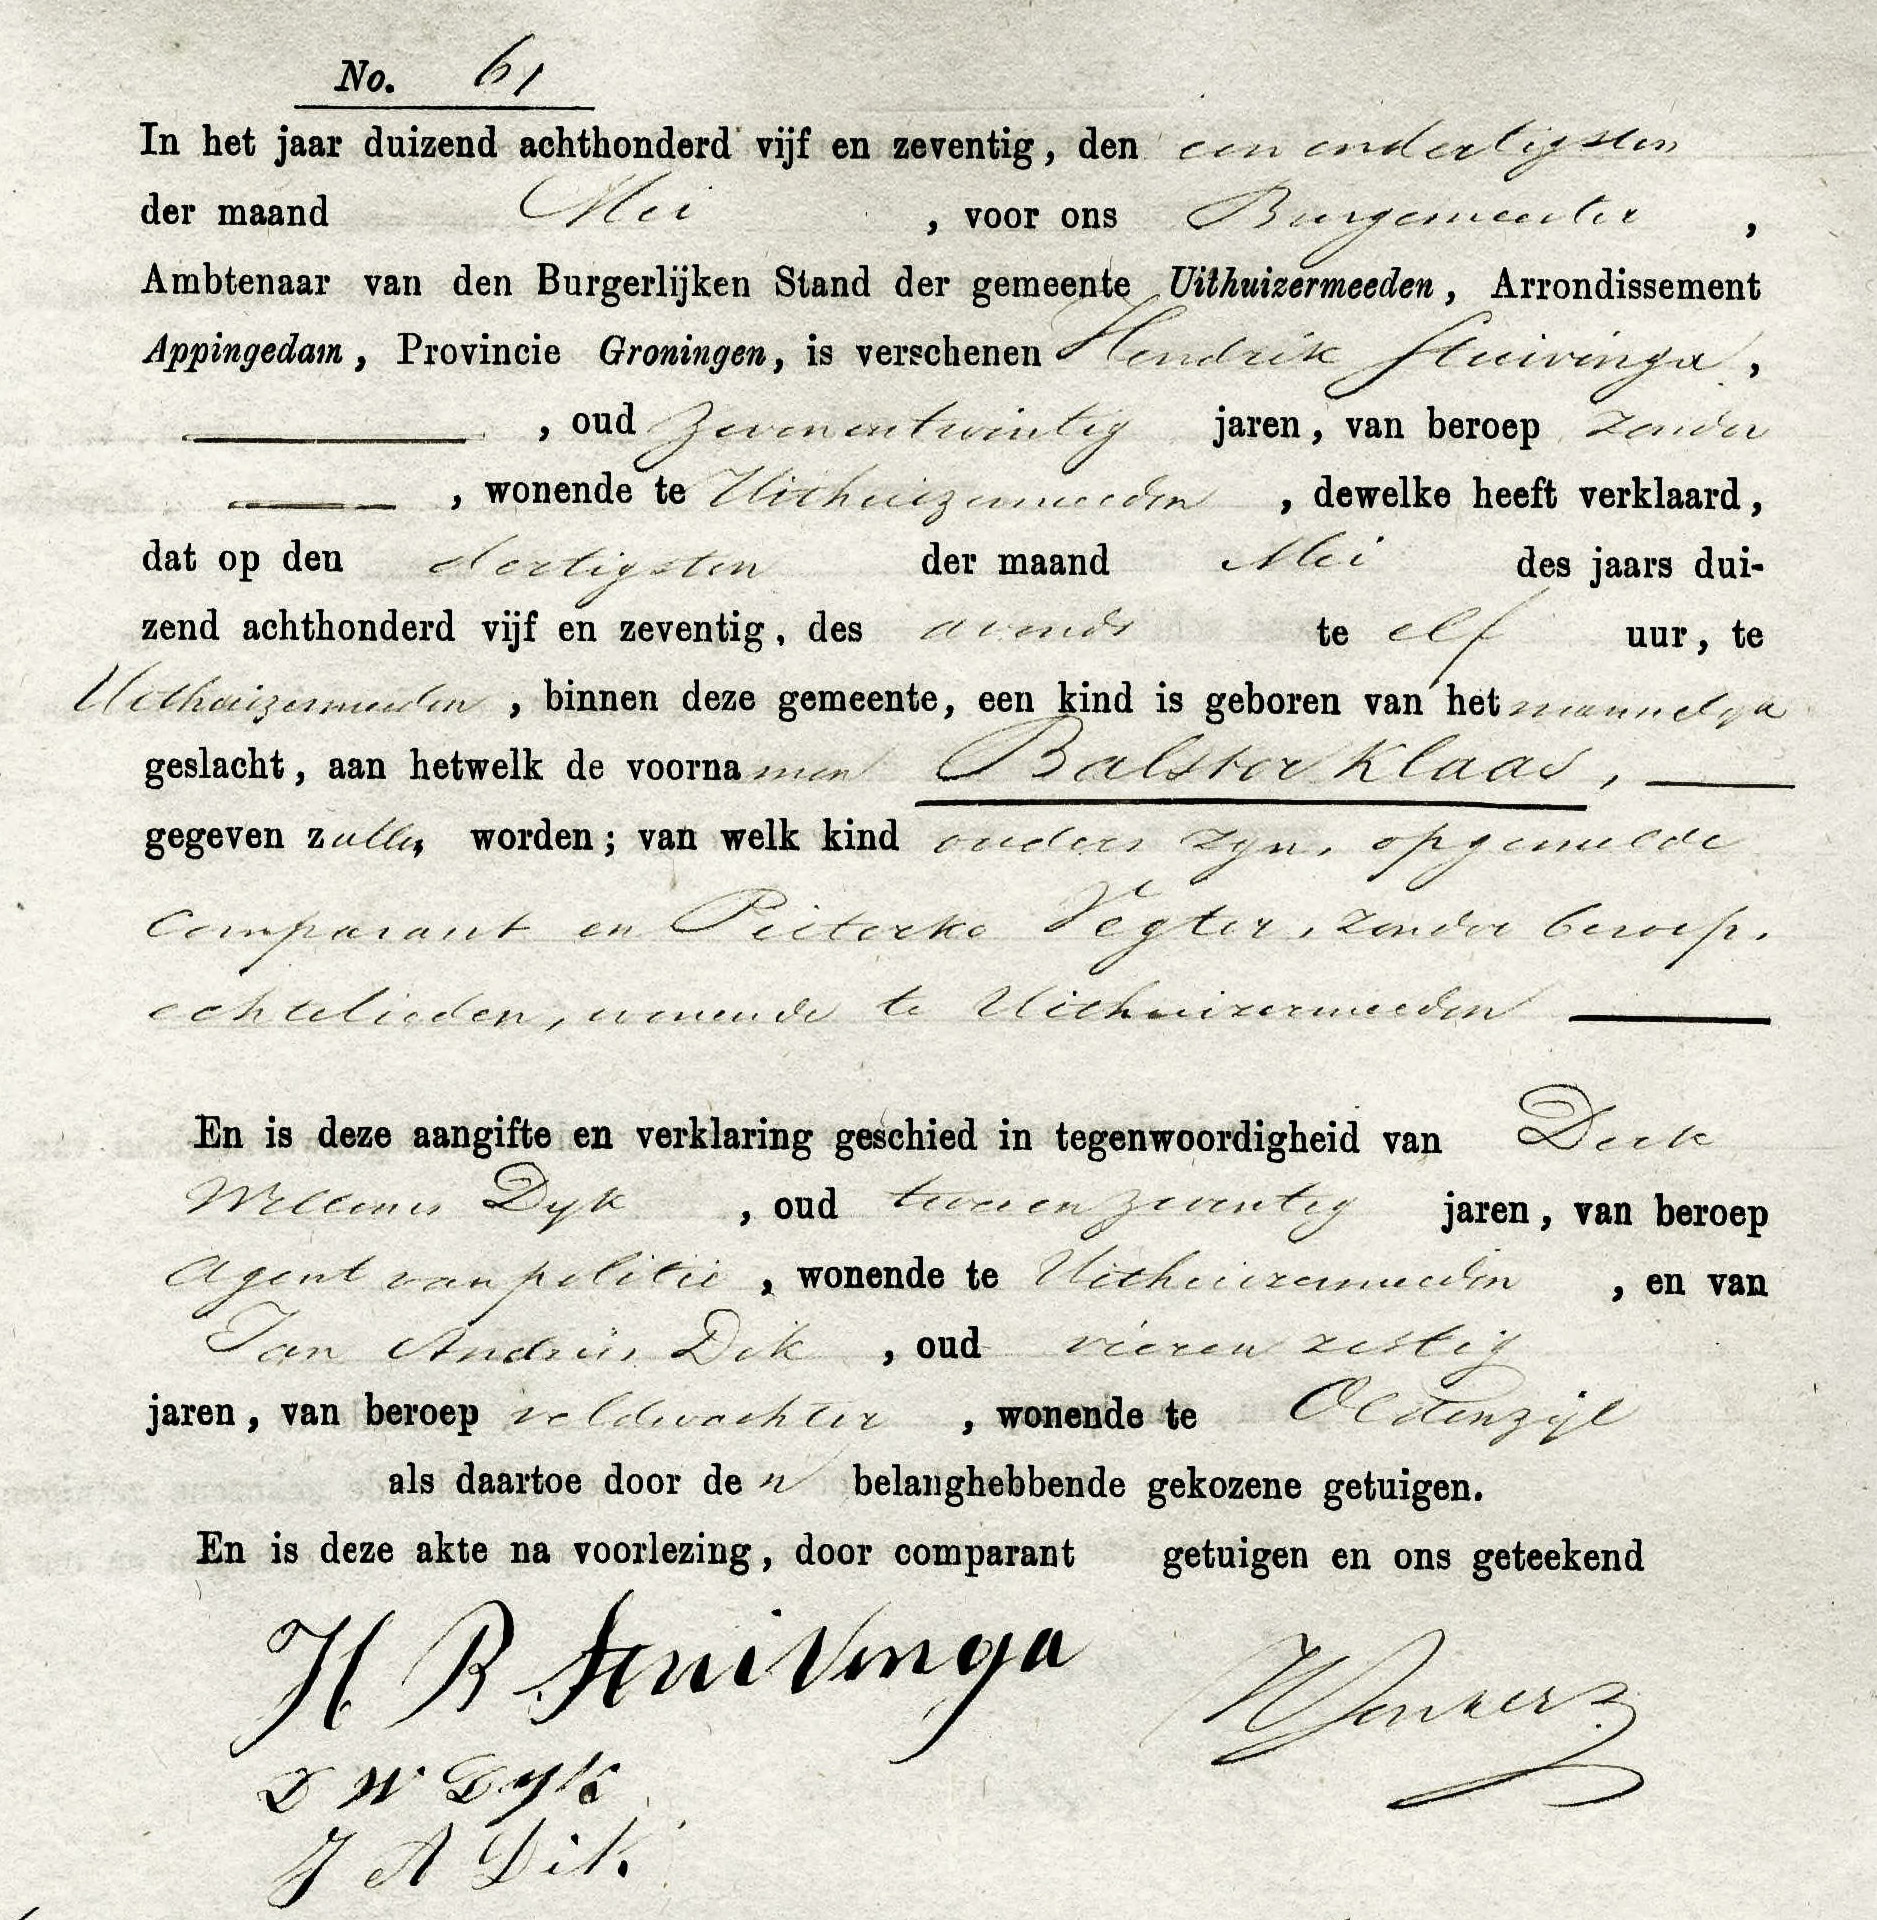 No. 61
In het jaar duizend achthonderd vijf en zeventig, den een en dertigsten
der maand Mei , voor ons Burgemeester ,
Ambtenaar van den Burgerlijken Stand der gemeente Uithuizermeeden, Arrondissement
Appingedam, Provincie Groningen, is verschenen Hendrik Stuivinga,
, oud zevenentwintig jaren, van beroep zonder
, wonende te Uithuizermeeden , dewelke heeft verklaard,
dat op den dertigsten der maand Mei des jaars dui-
zend achthonderd vijf en zeventig, des avonds te elf uur, te
Uithuizermeeden , binnen deze gemeente, een kind is geboren van het mannelyk
geslacht, aan hetwelk de voornamen Balster Klaas,
gegeven zullen worden; van welk kind ouders zyn, opgemelde
comparant en Pieterke Vegter, zonder beroep,
echtelieden, wonende te Uithuizermeeden
En is deze aangifte en verklaring geschied in tegenwoordigheid van Derk
Willems Dyk , oud tweeenzeventig jaren, van beroep
Agent van politie , wonende te Uithuizermeeden , en van
Jan Andries Dik , oud vierenzestig
jaren, van beroep veldwachter , wonende te Oldenzijl
als daartoe door den belanghebbende gekozene getuigen.
En is deze akte na voorlezing, door comparant getuigen en ons geteekend
H B Stuivenga
D W Dyk
J A Dik